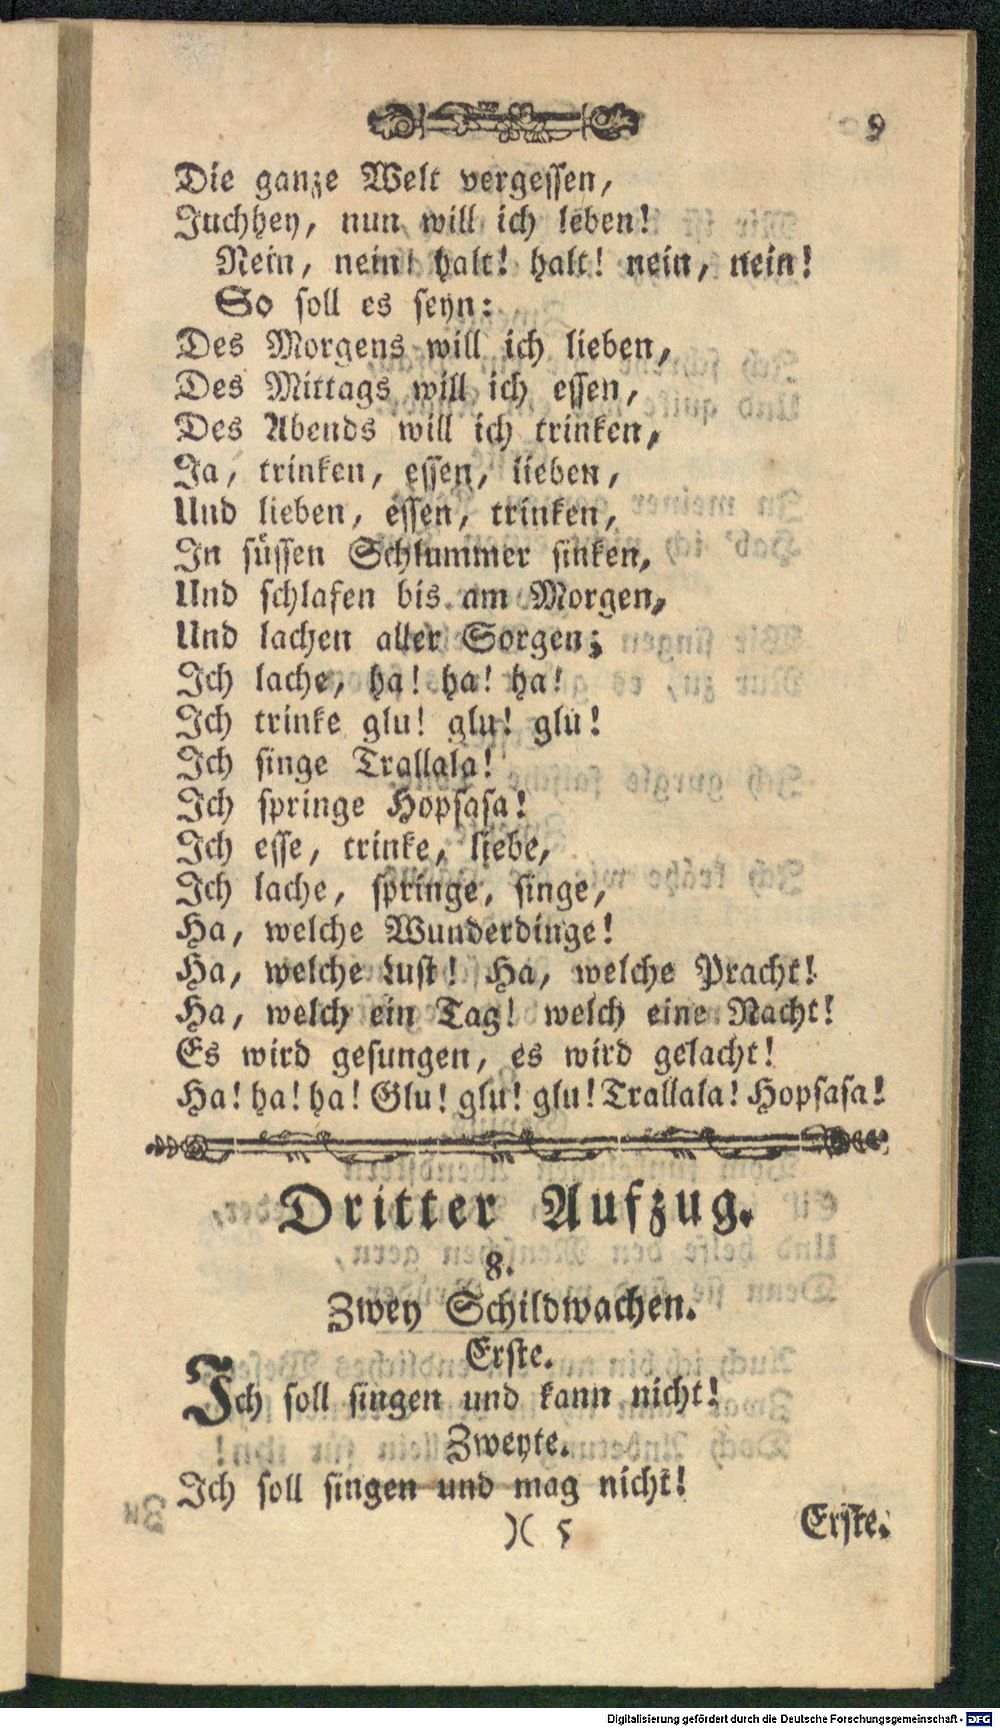 9
Die ganze Welt vergessen,
Juchhey, nun will ich leben!
Nein, nein! halt! halt! nein, nein!
So soll es seyn:
Des Morgens will ich lieben,
Des Mittags will ich essen,
Des Abends will ich trinken,
Ja, trinken, essen, lieben,
Und lieben, essen, trinken,
In süssen Schlummer sinken,
Und schlafen bis am Morgen,
Und lachen aller Sorgen;
Ich lache, ha! ha! ha!
Ich trinke glu! glu! glu!
Ich singe Trallala!
Ich springe Hopsasa!
Ich esse, trinke, liebe,
Ich lache, springe, singe,
Ha, welche Wunderdinge!
Ha, welche Lust! Ha, welche Pracht!
Ha, welch ein Tag! welch eine Nacht!
Es wird gesungen, es wird gelacht!
Ha! ha! ha! Glu! glu! glu! Trallala! Hopsasa!
Dritter Aufzug.
8.
Zwey Schildwachen.
Erste.
Ich soll singen und kann nicht!
Zweyte.
Ich soll singen und mag nicht!
)( 5
Erste.
Digitalisierung gefördert durch die Deutsche Forschungsgemeinschaft - DFG